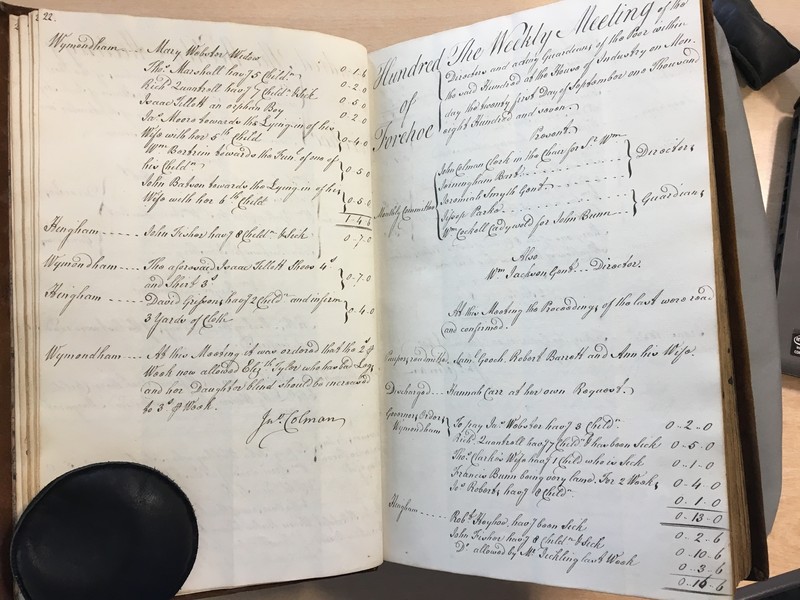 22.
Wymondham ---- Mary Webster Widow 0-1-6
Thos. Marshall havg. 5 Childn. 0-2-0
Richd. Quantrell havg. 7 Childn. & Sick 0-5-0
Isaac Tillett an orphan Boy 0-2-0
Jas. Moore towards the Lying in of his
Wife with her 5th. Child 0-4-0
Wm. Bartrim towards the Funl. of one of
his Childn. 0-5-0
John Batson towards the Lying in of his
Wife with her 6th. Child 0-5-0
1-4-6
Hingham ---- John Fisher havg. 8 Childn. & Sick 0-7-0
Wymondham ---- The aforesaid Isaac Tillett Shoes 4s.
and Shirt 3s. 0-7-0
Hingham ---- David havg. 2 Childn. and infirm
3 Yards of Cloth 0-4-0
Wymondham ---- At this Meeting it was ordered that the 2s. ⅌
Week now allowed Elizth. Tyler who has bad Legs
and her Daughter blind should be increased
to 3s. ⅌ Week.
Jno. Colman
Hundred
of
Forehoe
The Weekly Meeting of the
Directors and acting Guardians of the Poor within
the said Hundred at the House of Industry on Mon-
day the twenty first Day of September one Thousand
eight Hundred and seven.
Present.
Monthly Committee
John Colman Clerk in the Chair for Sr. Wm.
Jerningham Bart.
Jeremiah Smyth Gent.
Directors
Jessope Parke
Wm. Cockell Cadywold for John Bunn
Guardians
Also
Wm. Jackson Gent. Director.
At this Meeting the Proceedings of the last were read
and confirmed.
Paupers readmitted Saml. Gooch, Robert Barrett and Ann his Wife.
Discharged ---- Hannah Carr at her own Request.
Governors Orders
Wymondham To pay Jas. Webster havg. 3 Childn. 0-2-0
Richd. Quantrell havg. 7 Childn. & has been Sick 0-5-0
Thos. Clarke's Wife havg. 1 Child who is Sick 0-1-0
Francis Bunn being very lame. For 2 Weeks 0-4-0
Jos. Roberts havg. 8 Childn. 0-1-0
0-13-0
Hingham ---- Robt. Heyhoe havg. been Sick 0-2-6
John Fisher havg. 8 Childn. & Sick 0-10-6
Do. allowed by Mr. last Week 0-3-6
0-16-6